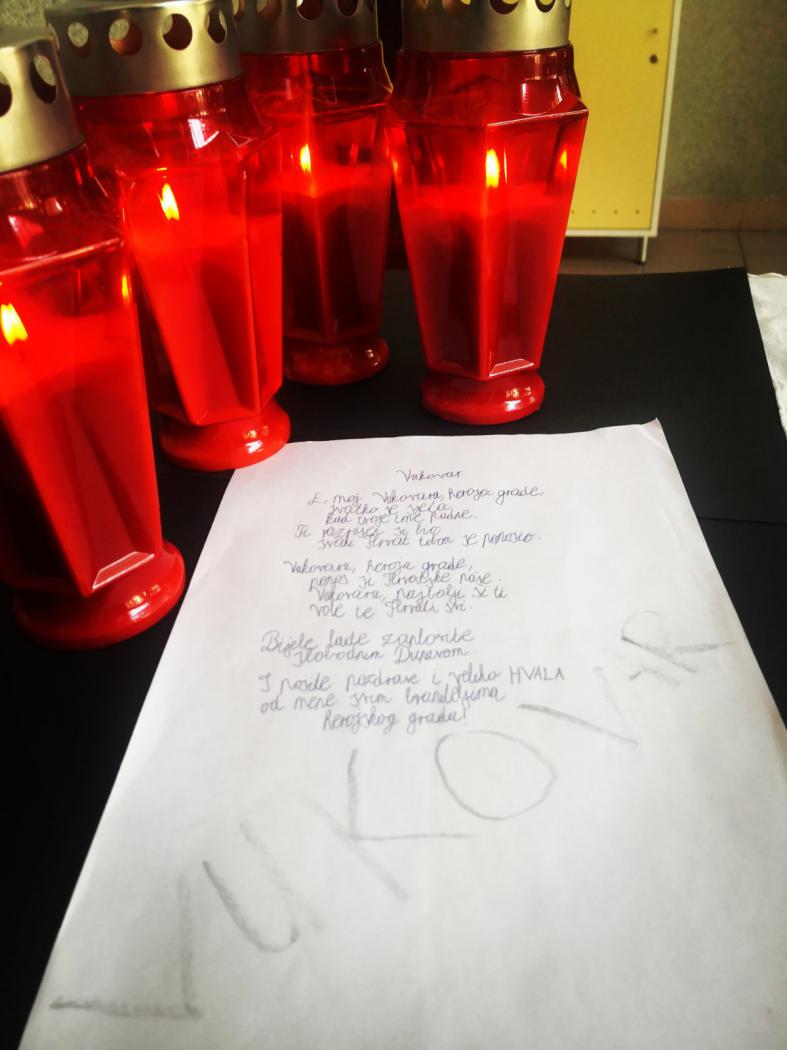 Vukovar
E, moj Vukovaru, heroja grade,
svatko je sjeta
kad tvoje ime padne.
Ti razrušen si bio
svaki Hrvat tobom se ponosio.
Vukovaru, heroju grade,
ponos si Hrvatske naše.
Vukovaru, najbolji si ti
vole te Hrvati svi.
Bijele lađe zaplovite
slobodnim Dunavom.
I nosite pozdrave i veliko HVALA
od mene svim braniteljima
herojskog grada!
VUKOVAR